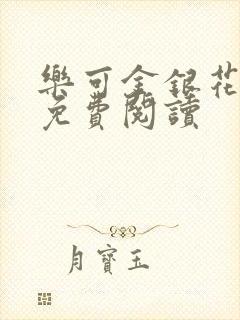 樂可金銀花
免費閱讀
月寶玉